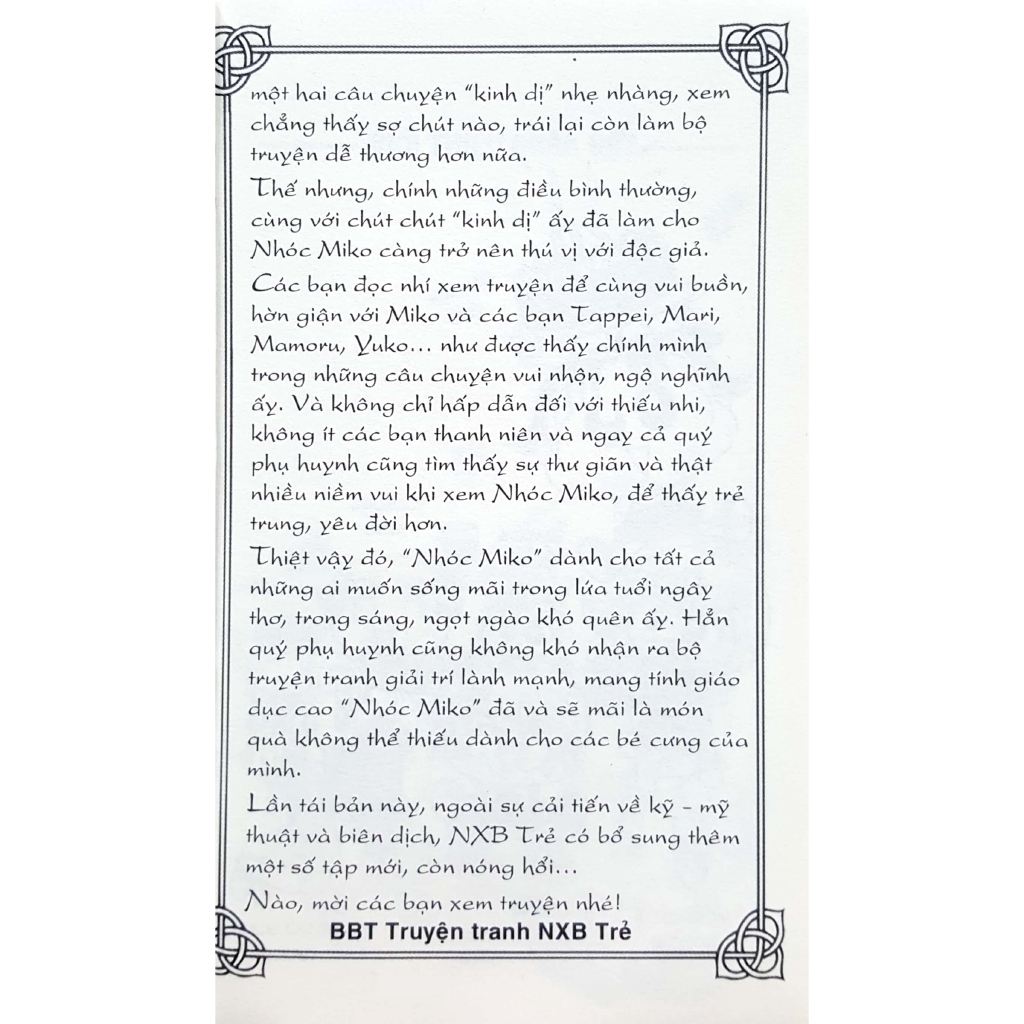 một hai câu chuyện “kinh dị” nhẹ nhàng, xem
chẳng thấy sợ chút nào, trái lại còn làm bộ
truyện dễ thương hơn nữa.
Thế nhưng, chính những điều bình thường,
cùng với chút chút “kinh dị” ấy đã làm cho
Nhóc Miko càng trở nên thú vị với độc giả.
Các bạn đọc nhí xem truyện để cùng vui buồn,
hờn giận với Miko và các bạn Tappei, Mari,
Mamoru, Yuko... như được thấy chính mình
trong những câu chuyện vui nhộn, ngộ nghĩnh
ấy. Và không chỉ hấp dẫn đối với thiếu nhi,
không ít các bạn thanh niên và ngay cả quý
phụ huynh cũng tìm thấy sự thư giãn và thật
nhiều niềm vui khi xem Nhóc Miko, để thấy trẻ
trung, yêu đời hơn.
Thiệt vậy đó, “Nhóc Miko” dành cho tất cả
những ai muốn sống mãi trong lứa tuổi ngây
thơ, trong sáng, ngọt ngào khó quên ấy. Hẳn
quý phụ huynh cũng không khó nhận ra bộ
truyện tranh giải trí lành mạnh, mang tính giáo
dục cao “Nhóc Miko” đã và sẽ mãi là món
quà không thể thiếu dành cho các bé cưng của
mình.
Lần tái bản này, ngoài sự cải tiến về kỹ - mỹ
thuật và biên dịch, NXB Trẻ có bổ sung thêm
một số tập mới, còn nóng hổi...
Nào, mời các bạn xem truyện nhé!
BBT Truyện tranh NXB Trẻ